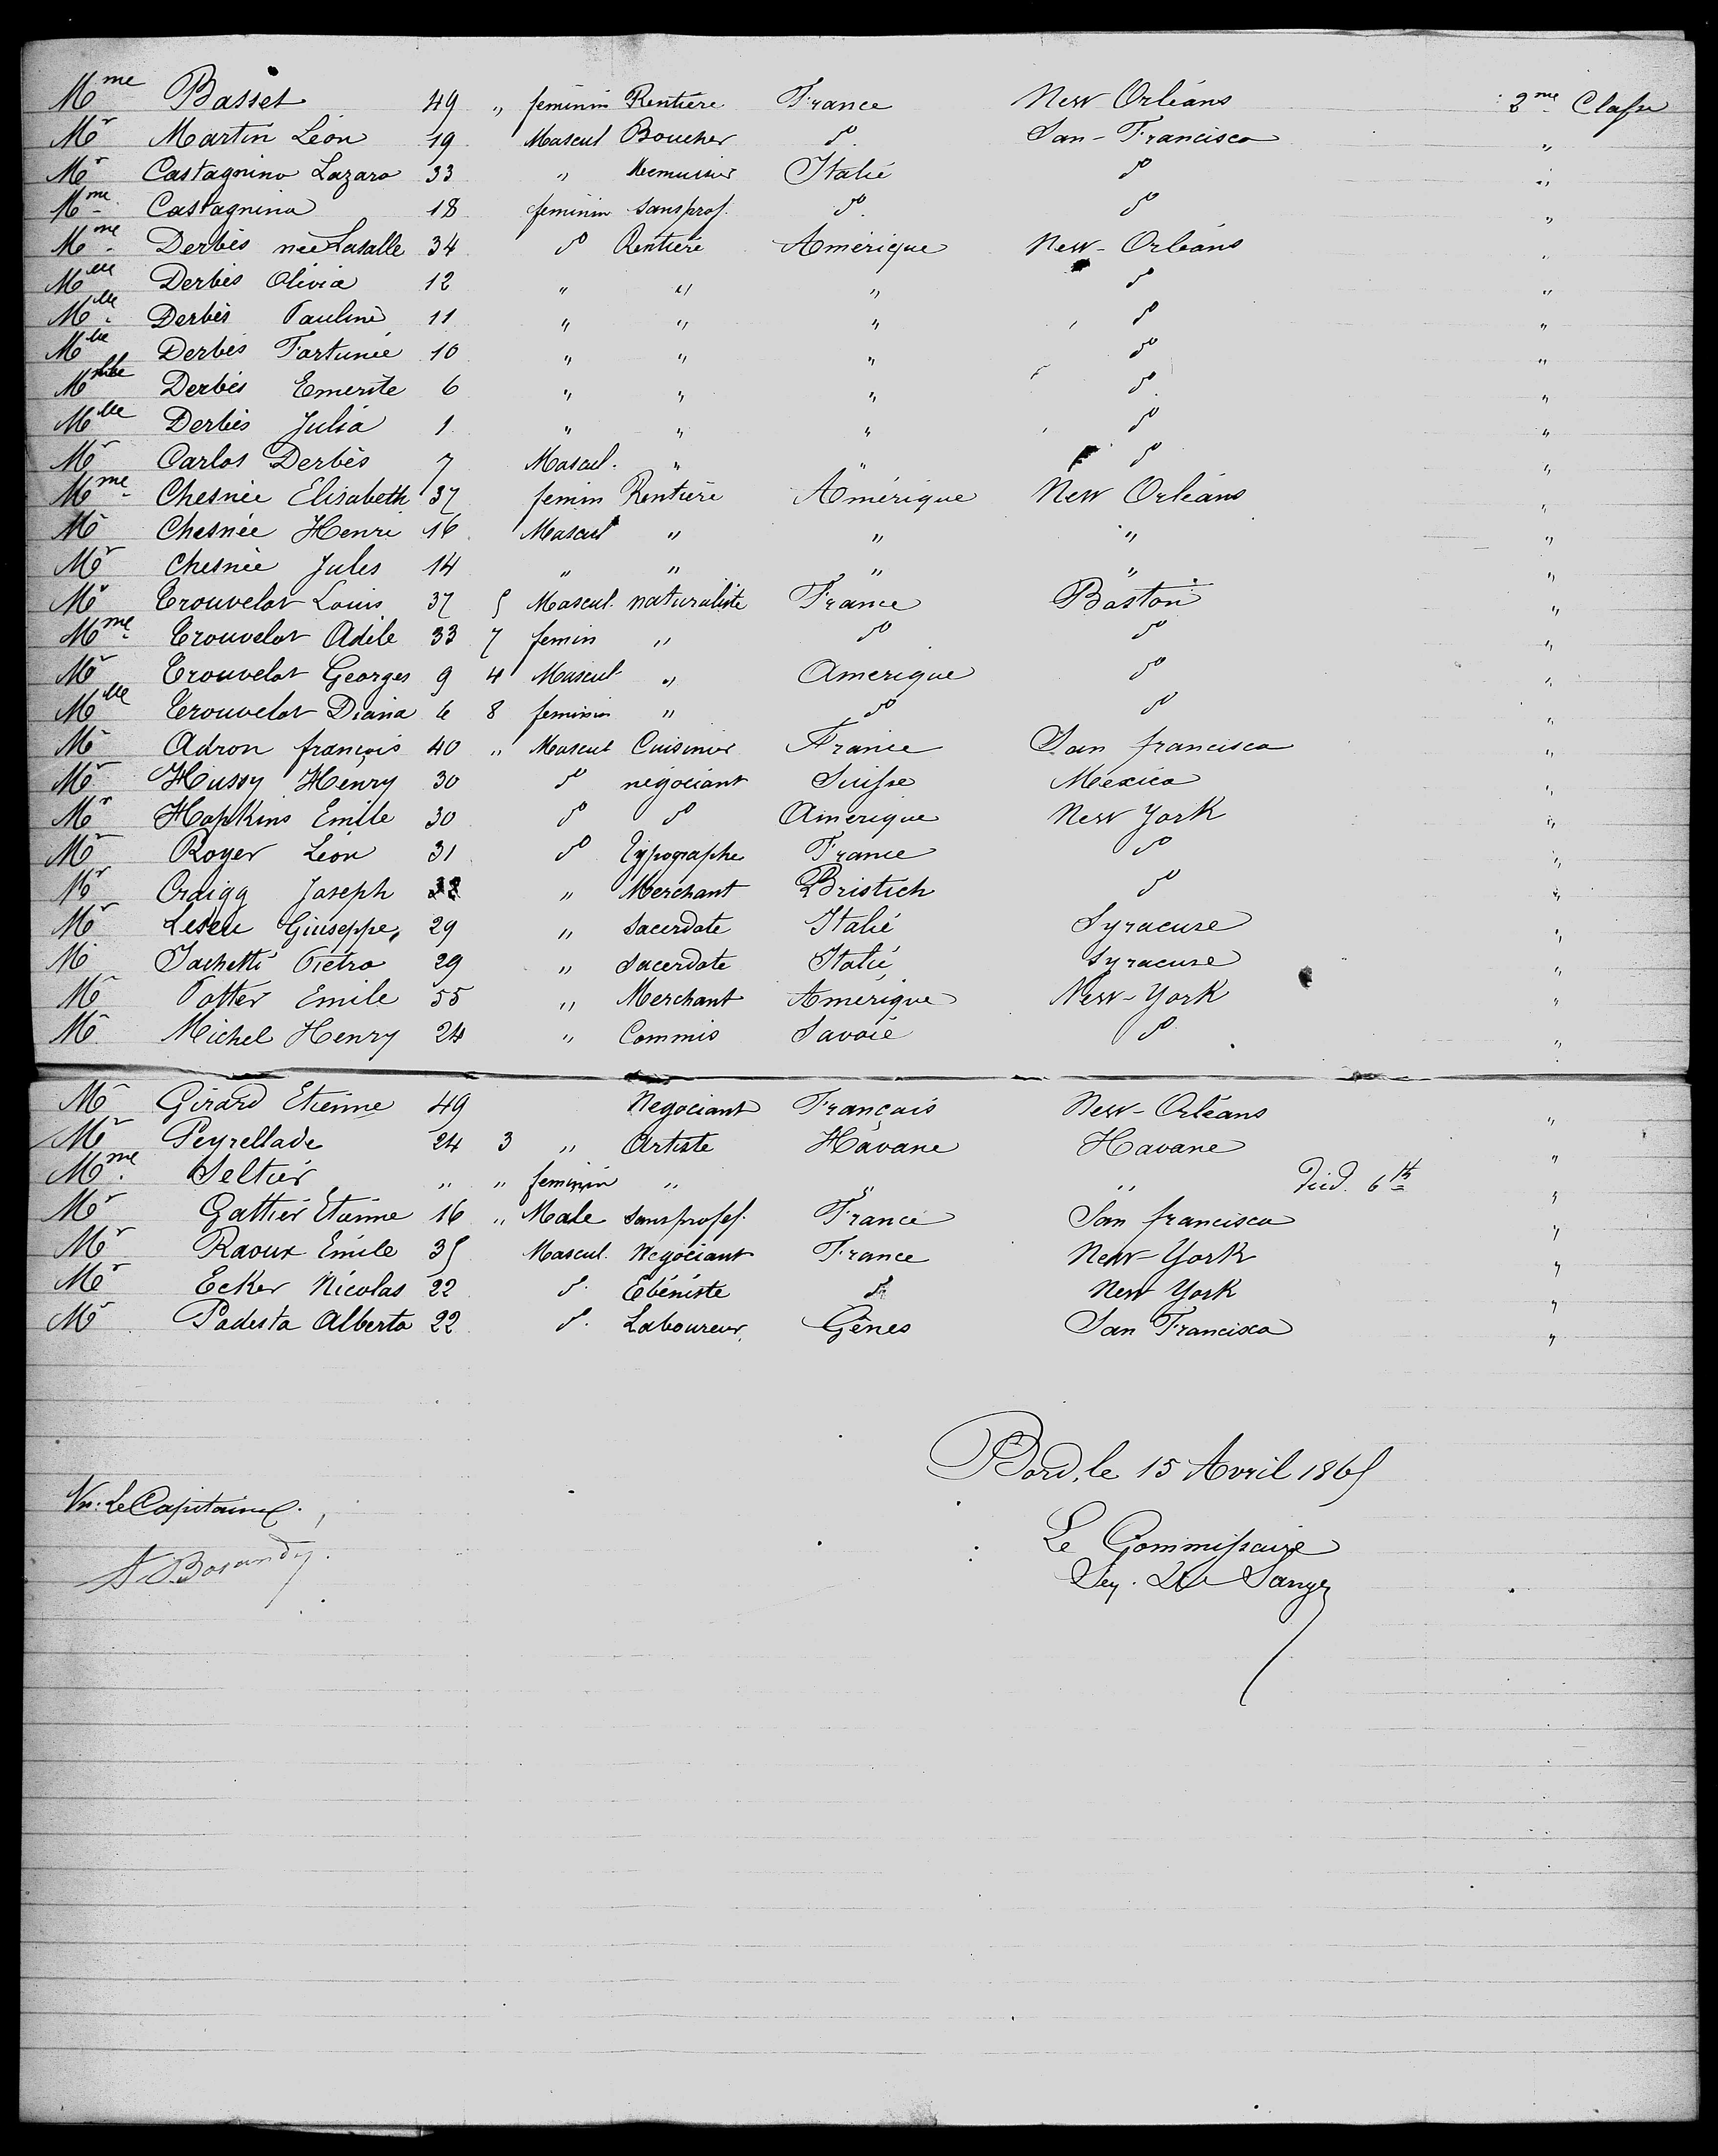 Mme Basset 49 " feminin Rentière France New Orléans 2me Classe
Mr Martin Léon 19 Mascul Boucher do San-Francisco "
Mr Castagnino Lazaro 33 " Menuisier Italie do "
Mme Castagnino 18 feminin sans prof. do do "
Mme Derbès née Lasalle 34 do Rentière Amérique New-Orléans "
Melle Derbès Olivia 12 " " " do "
Melle Derbès Pauline 11 " " " do "
Melle Derbès Fortunée 10 " " " do "
Melle Derbès Emerite 6 " " " do "
Melle Derbès Julia 1 " " " do "
Mr Carlos Derbès 7 Mascul. " " do "
Mme Chesnée Elisabeth 37 femin Rentière Amérique New Orléans "
Mr Chesnée Henri 16 Mascul " " " "
Mr Chesnée Jules 14 " " " " "
Mr Trouvelot Louis 37 5 Mascul. naturaliste France Boston "
Mme Trouvelot Adèle 33 7 femin " do do "
Mr Trouvelot Georges 9 4 Mascul " Amerique do "
Melle Trouvelot Diana 6 8 feminin " do do "
Mr Adron françois 40 " Mascul Cuisinier France San francisco "
Mr Hussy Henry 30 do négociant Suisse Mexico "
Mr Hopkins Emile 30 do do Amerique New York "
Mr Royer Léon 31 do Typographe France do "
Mr Craigg Joseph " Merchant Bristich do "
Mr Giuseppe 29 " Sacerdote Italie Syracuse "
Mr Sachetti Pietro 29 " Sacerdote Italie Syracuse "
Mr Potter Emile 55 " Merchant Amérique New-York "
Mr Michel Henry 24 " Commis Savoie do "
Mr Girard Etienne 49 Negociant Français New-Orléans "
Mr Peyrellade 24 3 " Artiste Havane Havane "
Mme Seltier " " feminin " " " Died. 6th "
Mr Gattier Etienne 16 " Male sans profes. France San francisco "
Mr Raoux Emile 35 Mascul. Negociant France New-York "
Mr Ecker Nicolas 22 do Ebéniste do New York "
Mr Podesta Alberto 22 do Laboureur Gênes San Francisco "
Bord, le 15 Avril 1865
Vu: Le Capitaine
Le Commissaire